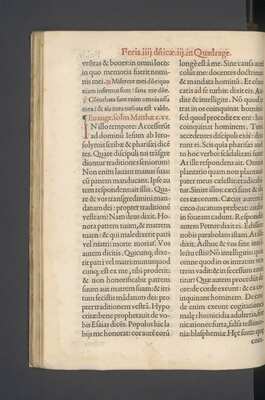 Feria.iiij dñicæ.iij.in Quadrage.
vestras & boues: in omni loco
in quo memoria fuerit nomi
nis mei. Miserere mei dñe quo
niam infirmus sum: sana me dñe.
Cõturbata sunt omnia ossa
mea: & aïa mea turbata est valde.
secundum Matthæ.
IN illo tempore: Accesserũt
ad dominũ Iesum ab hiero
solymis scribæ & pharisæi dicẽ
tes. Quare discipuli tui trãsgre
diuntur traditiones seniorum?
Non enim lauant manus suas
cũ panem manducant. Ipse au
tem respondens ait illis. Qua
re & vos transgredimini man
datum dei: propter traditionẽ
vestram? Nam deus dixit. Ho
nora patrem tuum, & matrem
tuam: & qui maledixerit patri
vel matri: morte moriat. Vos
autem dicitis. Quicunq; dixe
rit patri vel matri munus quod
cunq; est ex me, tibi proderit:
& non honorificabit patrem
suum aut matrem suam: & irri
tum fecistis mãdatum dei: pro
pter traditionem vestrã. Hypo
critæ: bene prophetauit de vo
bis Esaias dicẽs. Populus hic la
bijs me honorat: cor aũt eorũ
longe est à me. Sine causa aut
colũt me: docentes doctrinas
& mandata hominum. Et con
uocatis ad se turbis: dixit eis. Au
dite & intelligite. Nõ quod in
trat in os coinquinat hominẽ:
sed quod procedit ex ore: hoc
coinquinat hominem. Tunc
accedentes discipuli eius: dixe
runt ei. Scis quia pharisæi audi
to hoc verbo scãdalizati sunt?
At ille respondens ait. Omnis
plantatio quam non plantauit
pater meus cælestis: eradicabi
tur. Sinite illos: cæci sunt & du
ces cæcorum. Cæcus autem si
cæco ducatum præstet: ambo
in foueam cadunt. Respondẽs
autem Petrus dixit ei. Edissere
nobis parabolam istam. At ille
dixit. Adhuc & vos sine intel
lectu estis? Nõ intelligitis: quia
omne quod in os intrat in ven
trem vadit: & in secessum emit
titur? Quæ autem procedũt de
ore: de corde exeunt: & ea co
inquinant hominem. De cor
de enim exeunt cogitationes
malæ: homicidia adulteria for
nicationes furta, falsa testimo
nia blasphemiæ. Hęc sunt: quæ